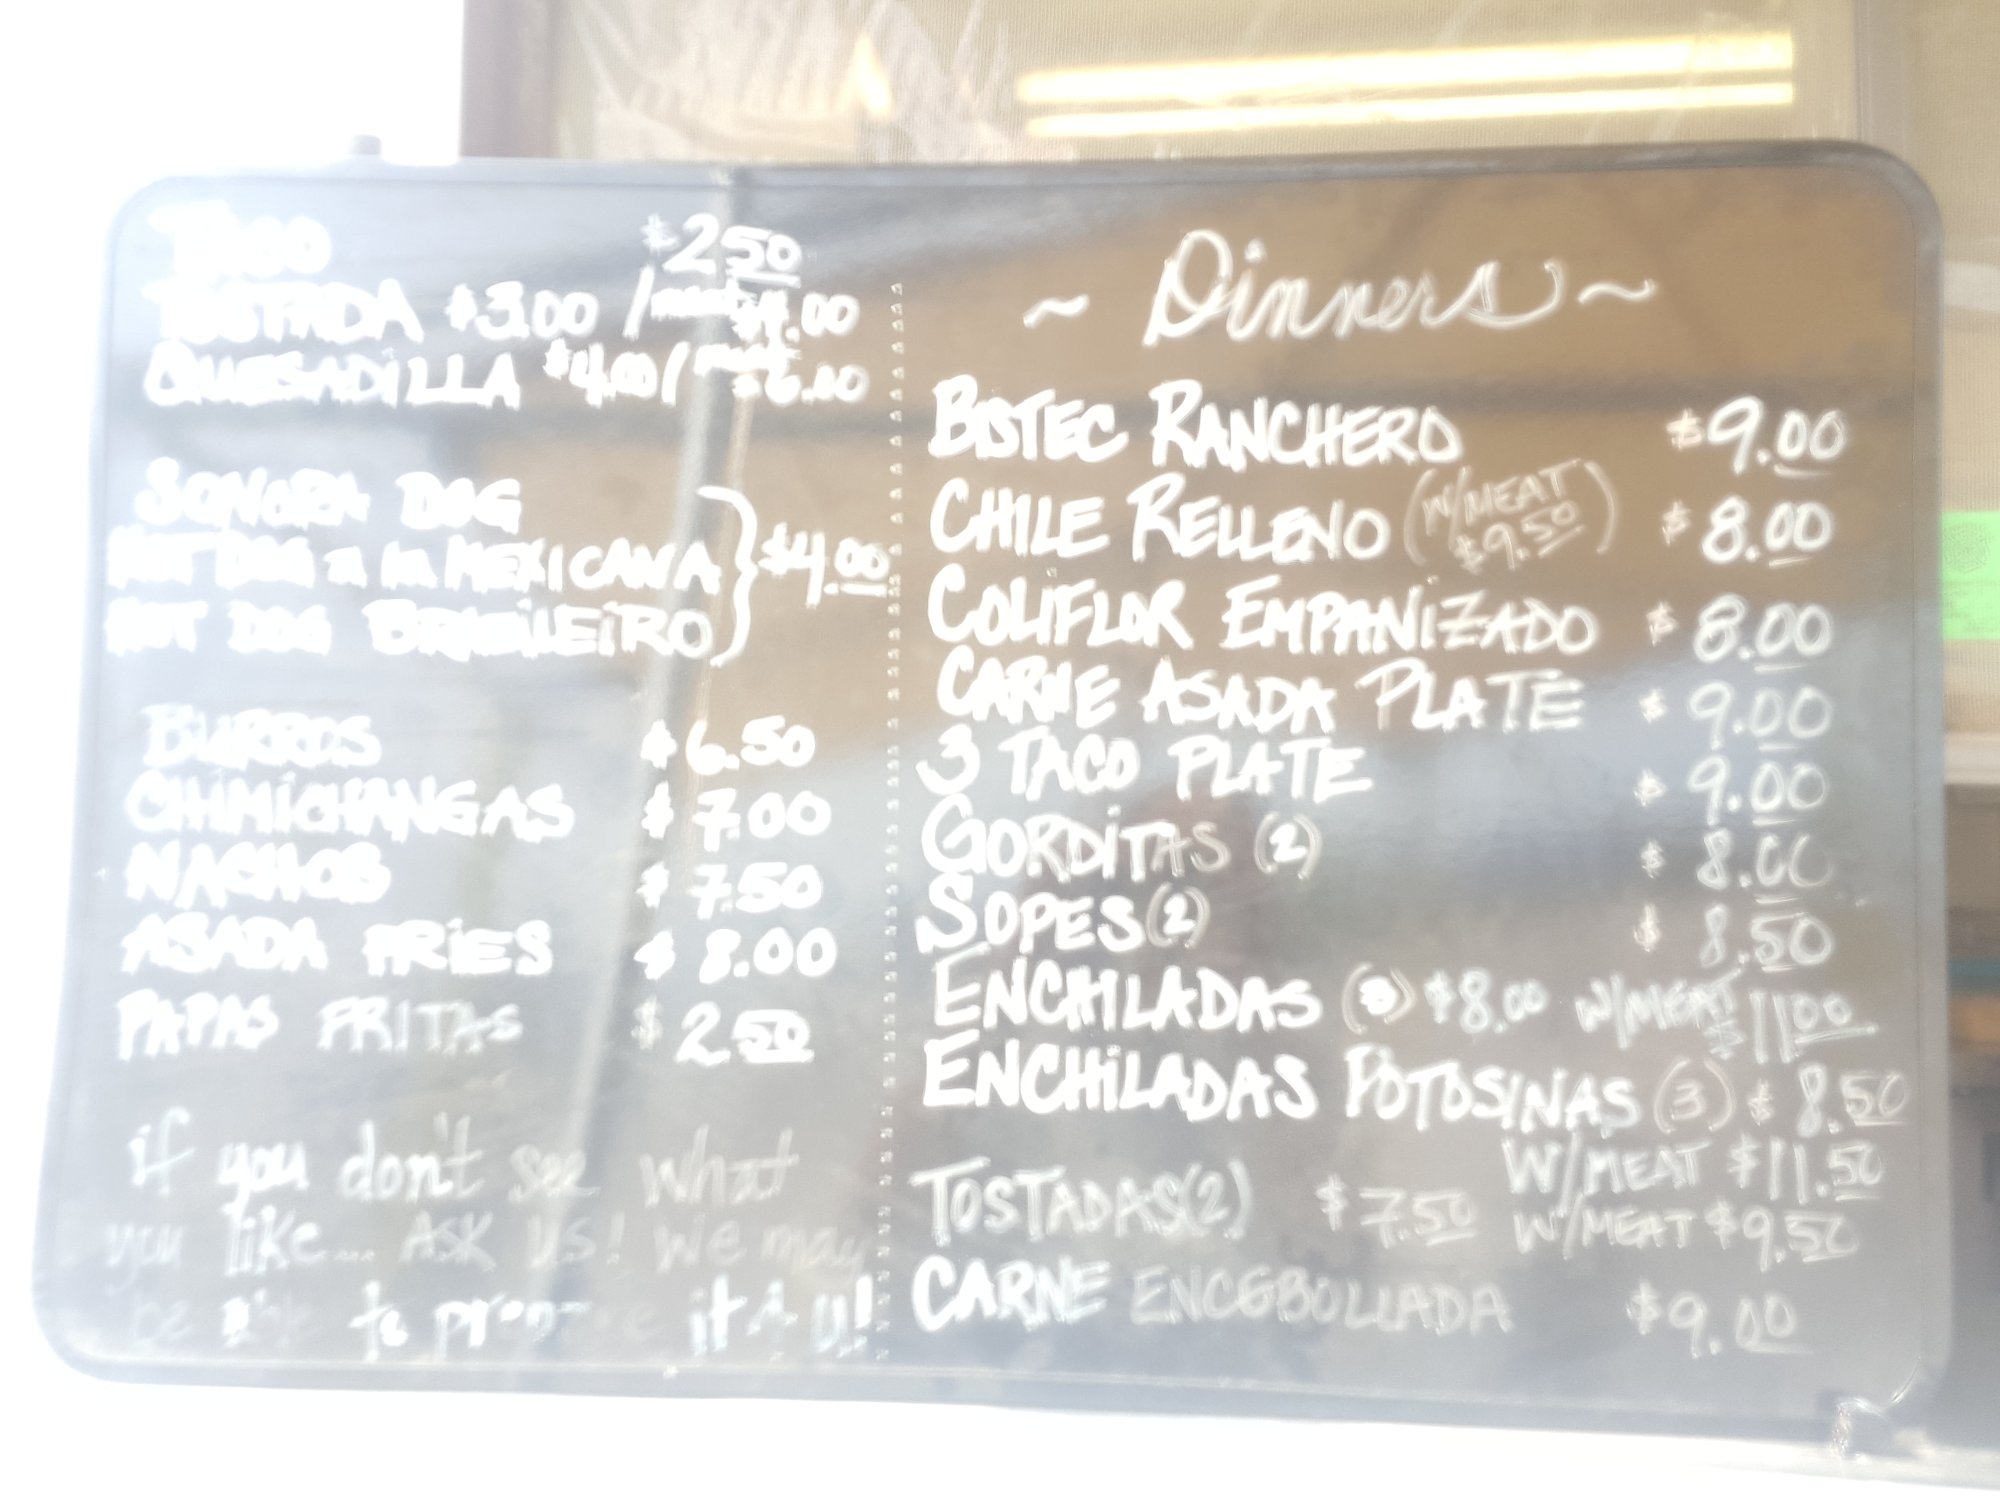 TACO $2.50
TOSTADA $3.00 / meat $4.00
QUESADiLLA $4.00 / meat $6.00
SONORA DOG
HOT DOG a la MEXICANA $4.00
HOT DOG BRASiLEiRO
BURROS $6.50
CHiMiCHANGAS $7.00
NACHOS $7.50
ASADA FRiES $8.00
PAPAS FRITAS $2.50
if you don't see what
you like... ASK US! We may
be able to it 4 U!
~ Dinners ~
BISTEC RANCHERO $9.00
CHILE RELLENO (W/MEAT $9.50) $8.00
COLIFLOR EMPANiZADO $8.00
CARNE ASADA PLATE $9.00
3 TACO PLATE $9.00
GORDiTAS (2) $8.00
SOPES (2) $8.50
ENCHiLADAS (3) $8.00 W/MEAT $11.00
ENCHiLADAS POTOSINAS (3) $8.50
W/MEAT $11.50
TOSTADAS (2) $7.50 W/MEAT $9.50
CARNE ENCEBOLLADA $9.00